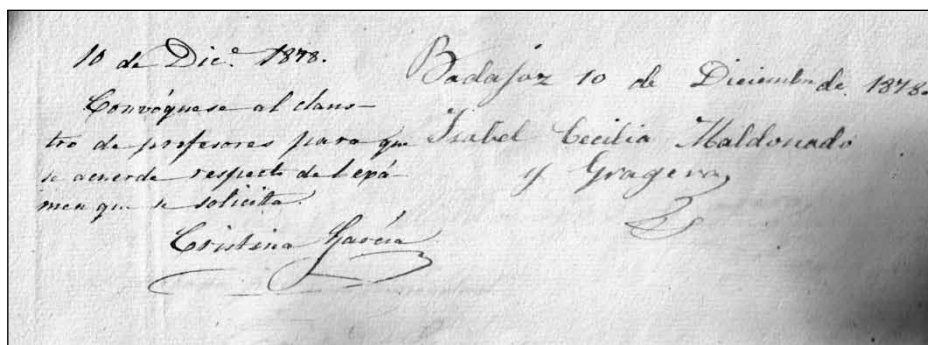 10 de Dic.e 1878.
Convóquese al claus-
tro de profesores para que
se acuerde respecto del exá-
men que se solicita.
Cristina García
Badajoz 10 de Diciembre de 1878.
Isabel Cecilia Maldonado
y Gragera